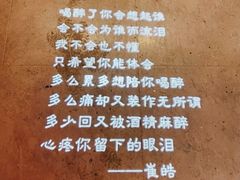 喝醉了你会想起谁
会不会为谁而流泪
我不会也不懂
只希望你能体会
多么累多想陪你喝醉
多么痛却又装作无所谓
多少回又被酒精麻醉
心疼你留下的眼泪
——崔皓